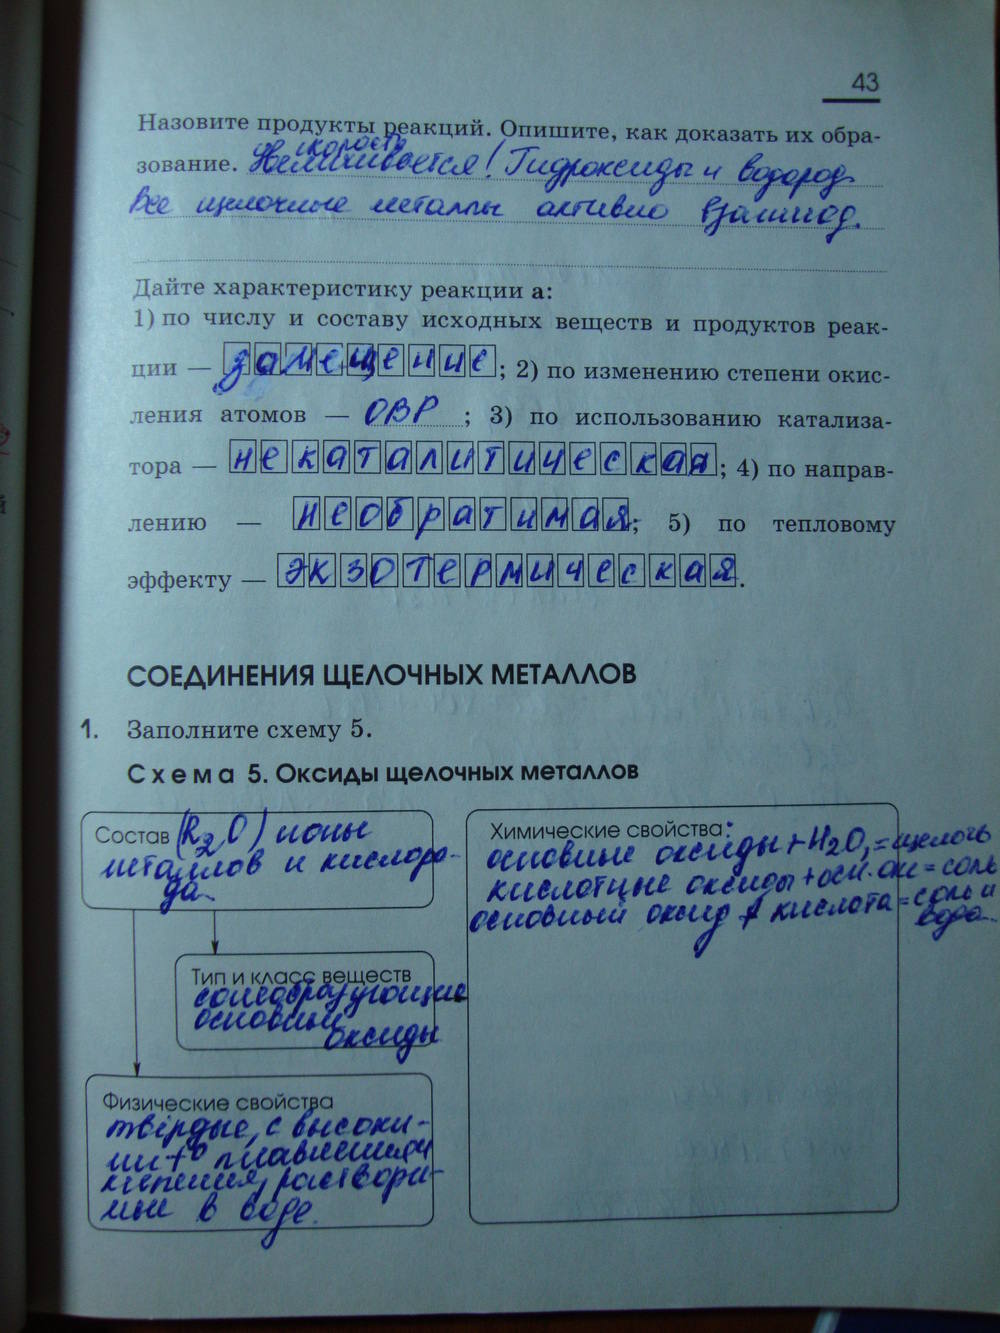 43
Назовите продукты реакций. Опишите, как доказать их обра-
скорость
зование. Увеличивается! Гидроксиды и водород.
Все щелочные металлы активно взаимод.
Дайте характеристику реакции а:
1) по числу и составу исходных веществ и продуктов реак-
ции — замещение; 2) по изменению степени окис-
ления атомов — ОВР; 3) по использованию катализа-
тора — некаталитическая; 4) по направ-
лению — необратимая; 5) по тепловому
эффекту — экзотермическая.
СОЕДИНЕНИЯ ЩЕЛОЧНЫХ МЕТАЛЛОВ
1. Заполните схему 5.
Схема 5. Оксиды щелочных металлов
Состав (R₂O) ионы
металлов и кислоро-
да.
Тип и класс веществ
солеобразующие
основные
оксиды
Физические свойства
твёрдые, с высоки-
ми t° плавления и
кипения, раствори-
мые в воде.
Химические свойства:
основные оксиды + H₂O = щелочь
кислотные оксиды + осн. ок = соль
основный оксид + кислота = соль и
вода.